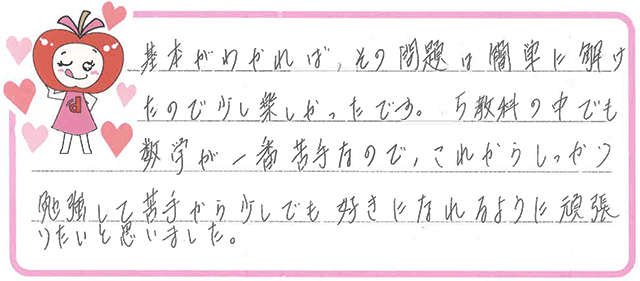 基本がわかれば、その問題は簡単に解け
たので少し楽しかったです。5教科の中でも
数学が一番苦手なので、これからしっかり
勉強して苦手から少しでも好きになれるように頑張
りたいと思いました。